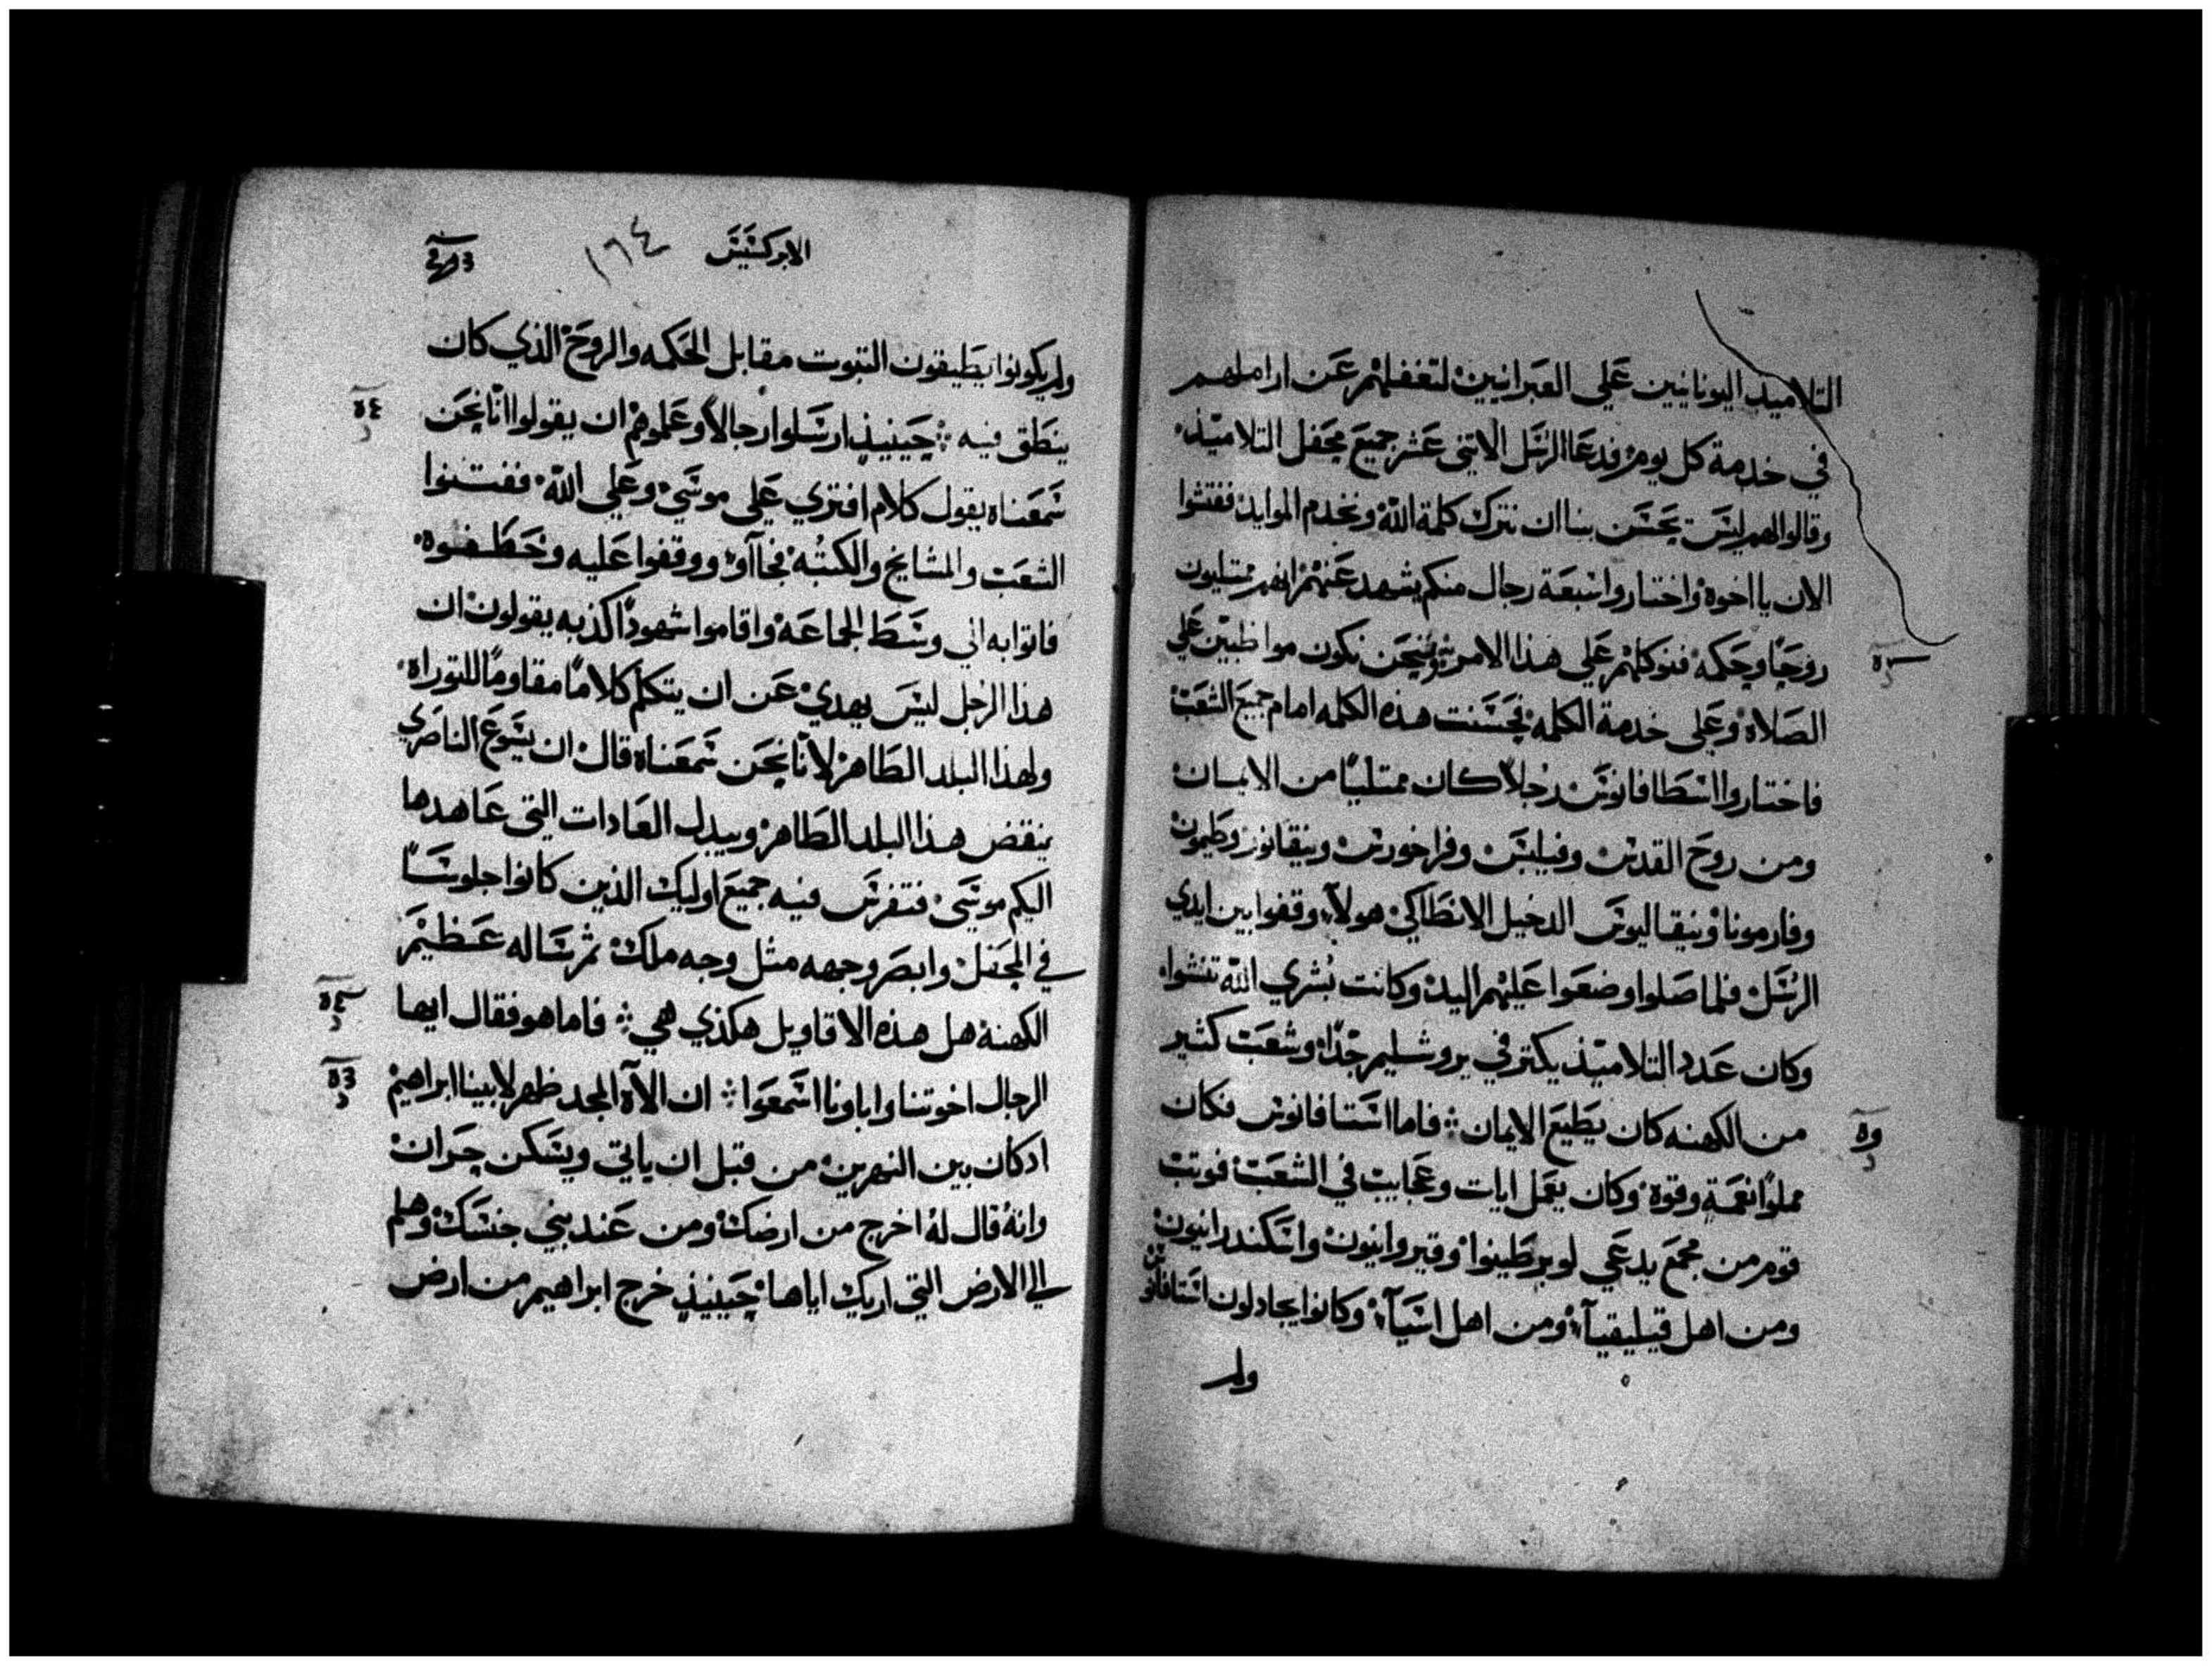 التلاميد اليونانيين علي العبرانيين لتغفلهم عن اراملهم
في خدمة كل يوم فدعا الرسل الاتني عشر جميع محفل التلاميذ
وقالوا لهم ليس يحسن بنا ان نترك كلمة الله ونخدم الموايد ففتشوا
الان يا اخوة واختاروا سبعة رجال منكم يشهد عنهم انهم ممتليون
روحا وحكمه فنوكلهم علي هذا الامر ونحن نكون مواظبين علي
الصلاة وعلي خدمة الكلمه فحسنت هذه الكلمه امام جميع الشعب
فاختاروا اسطافانوس رجلا كان ممتليا من الايمان
ومن روح القدس وفيلبس وفراخورس ونيقانور وطيمون
وفارمونا ونيقاليوس الدخيل الانطاكي هولآء وقفوا بين ايدي
الرسل فلما صلوا وضعوا عليهم اليد وكانت بشري الله تنشوا
وكان عدد التلاميذ يكتر في يروشليم جدا وشعب كثير
من الكهنه كان يطيع الايمان فاما استافانوس فكان
مملوا نعمة وقوة وكان يعمل ايات وعجايب في الشعب فوتب
قوم من مجمع يدعي لوبرطينوا وقيروانيون واسكندرانيون
ومن اهل قيليقيآء ومن اهل اسيآء وكانوا يجادلون استافانوس
ولم
الابركسيس
١٦٤
ولم يكونوا يطيقون التبوت مقابل الحكمه والروح الذي كان
ينطق فيه حينيذ ارسلوا رجالا وعلموهم ان يقولوا انا نحن
سمعناه يقول كلام افتري علي موسي وعلي الله ففتنوا
الشعب والمشايخ والكتبه فجآاو ووقفوا عليه وخطفوه
فاتوا به الي وسط الجماعة واقاموا شهودا كذبه يقولون ان
هذا الرجل ليس يهدي عن ان يتكلم كلاما مقاوما للتوراه
ولهذا البلد الطاهر لانا نحن سمعناه قال ان يسوع الناصري
ينقض هذا البلد الطاهر ويبدل العادات التي عاهدها
اليكم موسي فتفرس فيه جميع اوليك الذين كانوا جلوسا
في المحفل وابصر وجهه مثل وجه ملك ثم ساله عظيم
الكهنة هل هذه الاقاويل هكذي هي فاما هو فقال ايها
الرجال اخوتنا واباونا اسمعوا ان الآه المجد ظهر لابينا ابراهيم
ادكان بين النهرين من قبل ان ياتي ويسكن حران
وانه قال له اخرج من ارضك ومن عند بني جنسك وهلم
الي الارض التي اريك اياها حينيذ خرج ابراهيم من ارض